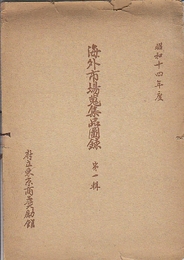 昭和十四年度
海外市場蒐集品図録 第一輯
府立東京商工奨励館